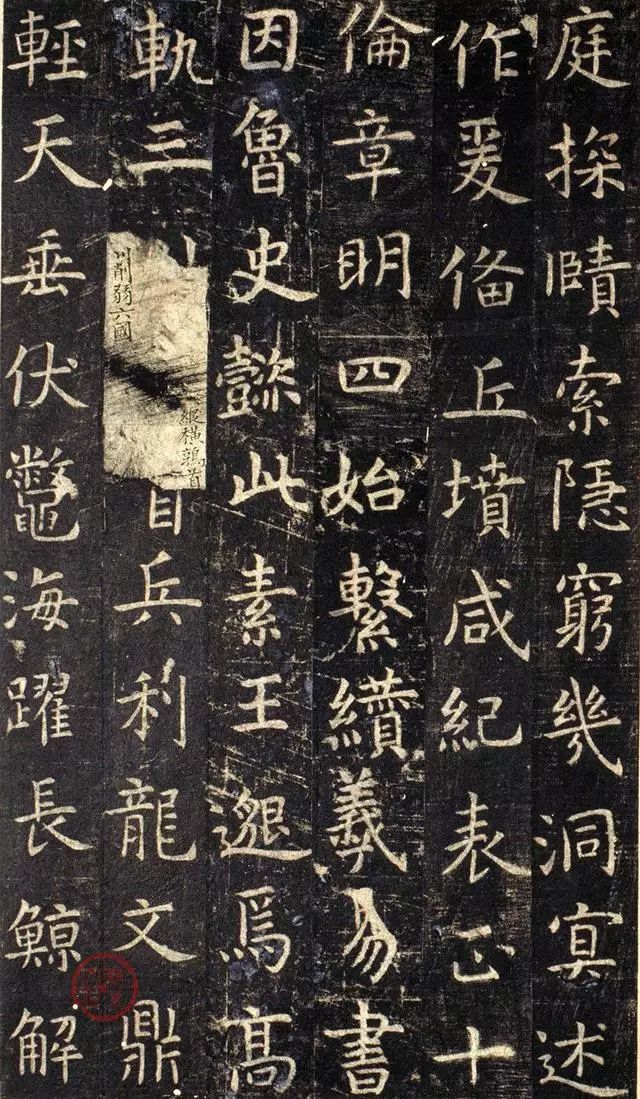 庭探賾索隱窮幾洞寘述
作爰俻丘墳咸紀表正十
倫章明四始繫纘羲易書
因魯史懿此素王邈焉高
軌三
川削弱六國
縱橫鶉首
首兵利龍文鼎
輕天垂伏鼈海躍長鯨解